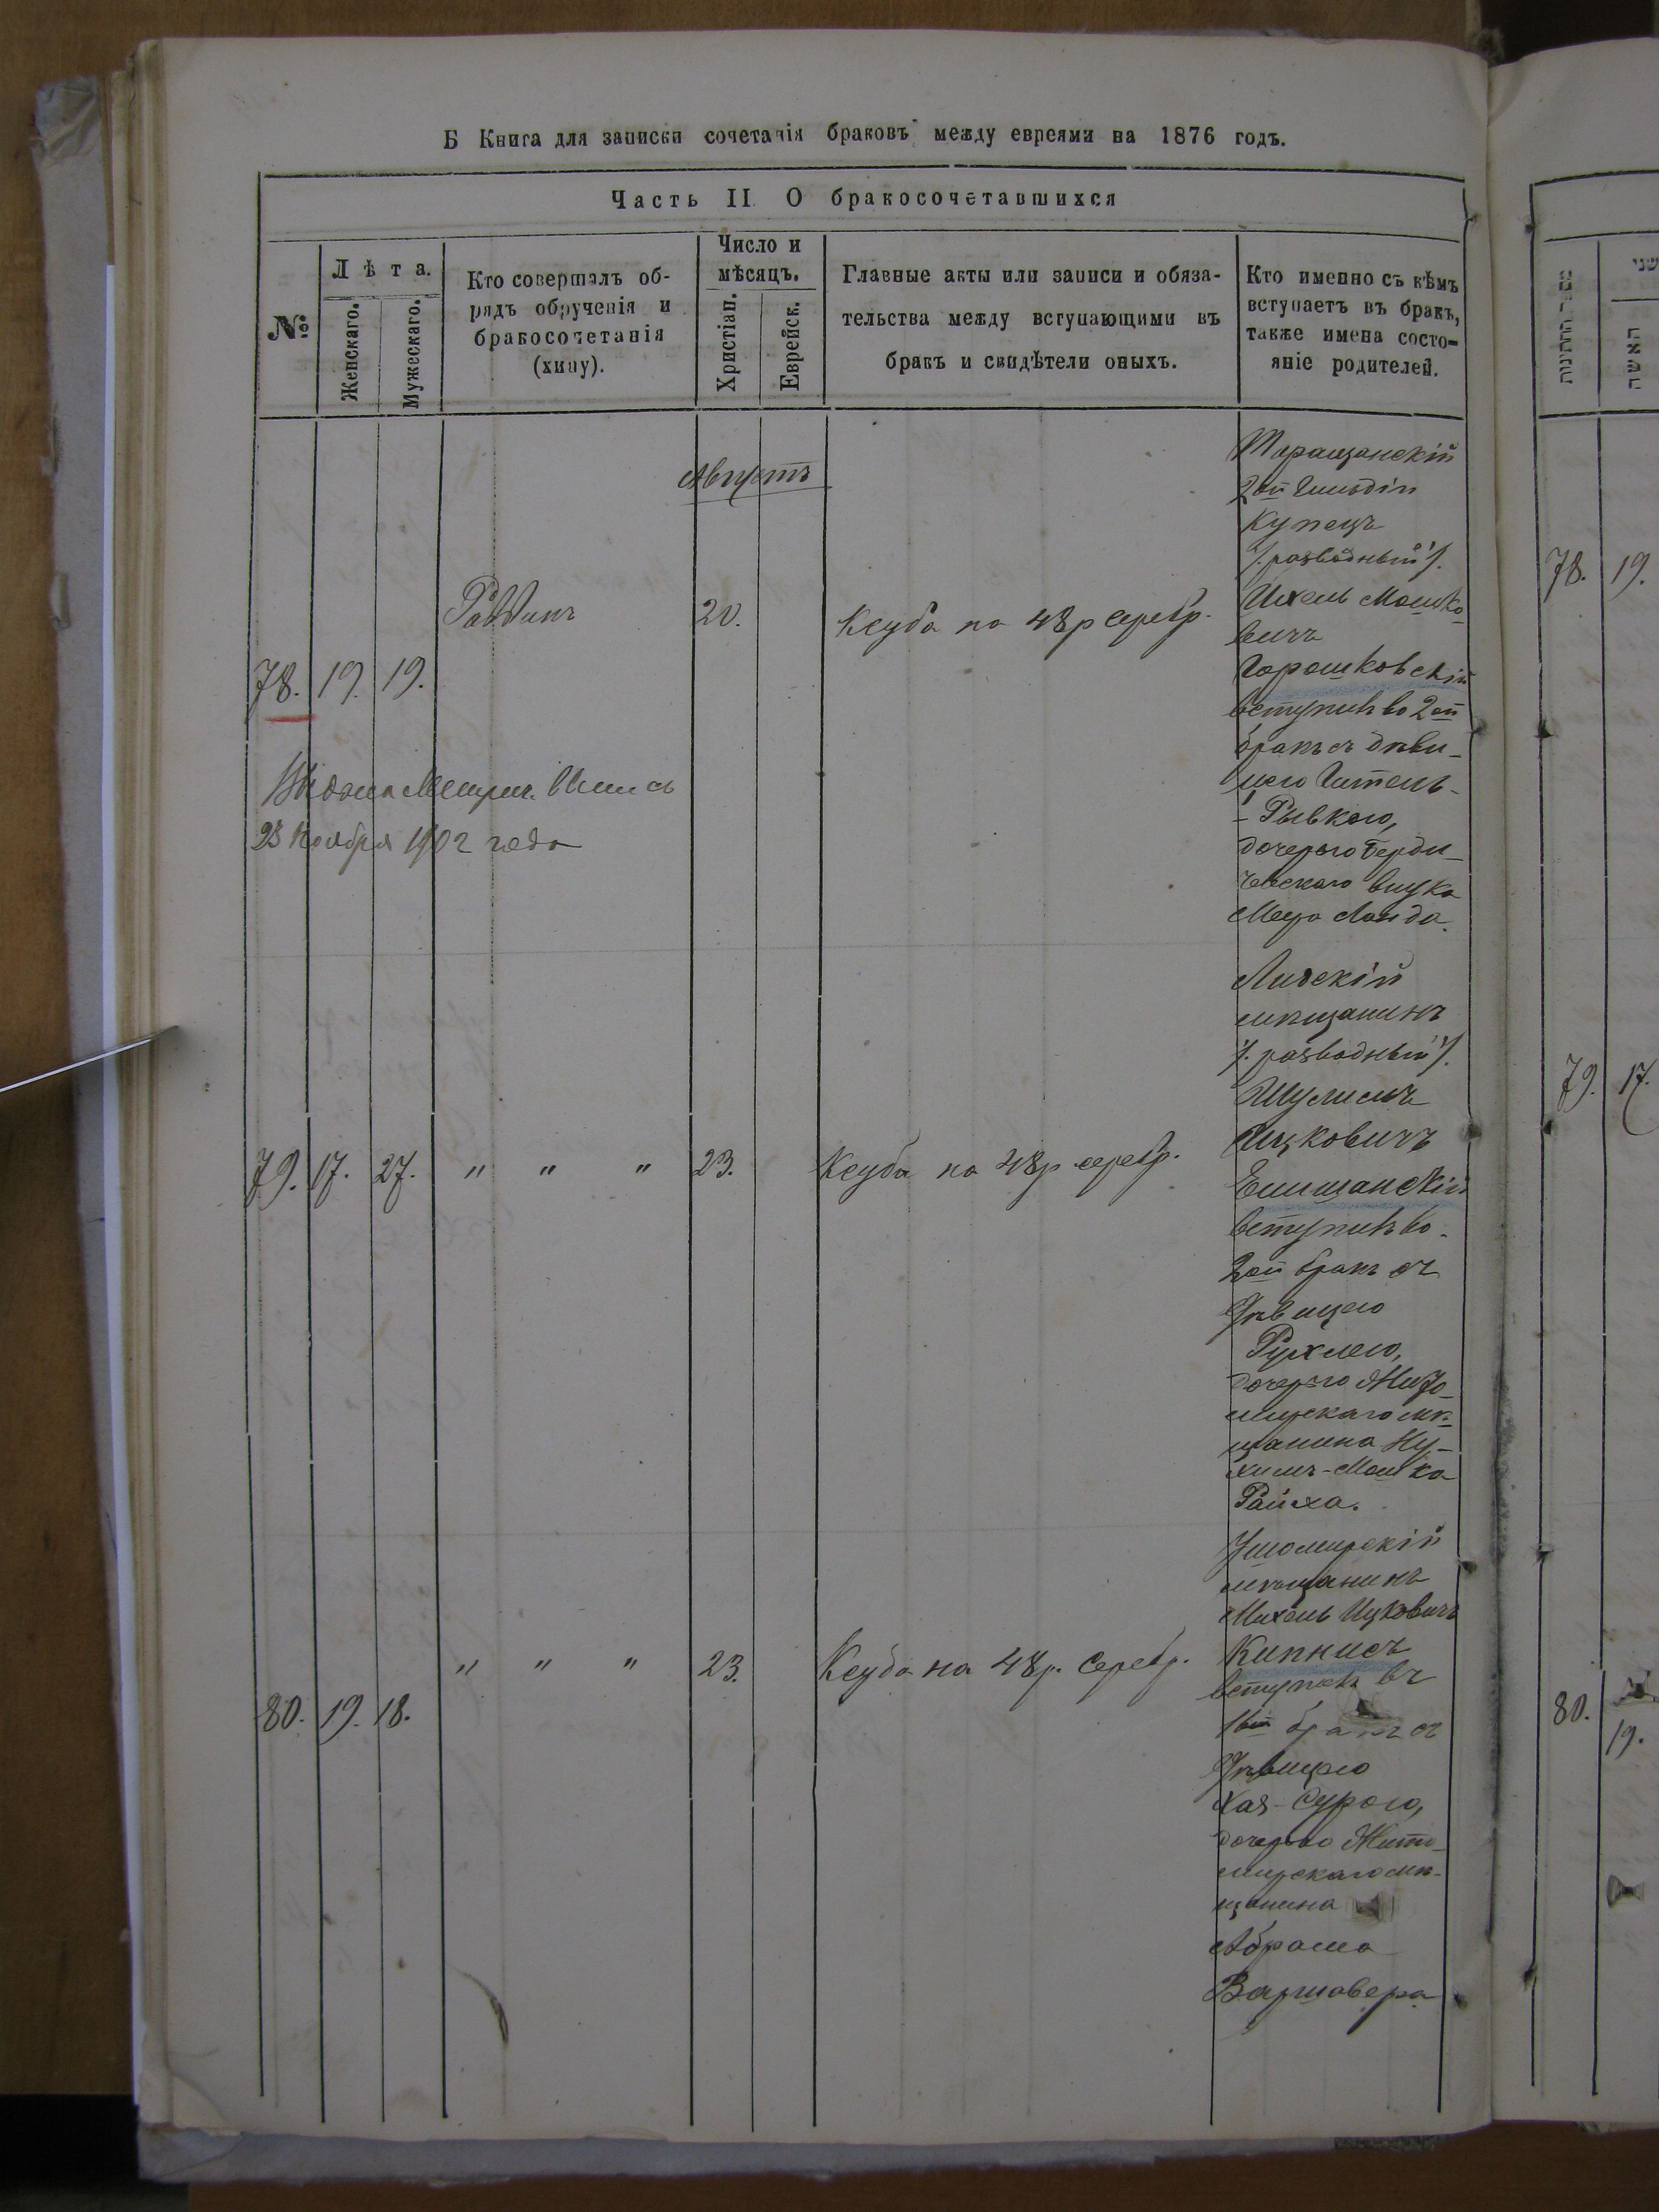 Б Книга для записки сочетанія браковъ между евреями на 1876 годъ.
Часть II О бракосочетавшихся
№
Лѣта.
Женскаго.
Мужескаго.
Кто совершалъ об-
рядъ обрученія и
бракосочетанія
(хупу).
Число и
мѣсяцъ.
Христіан.
Еврейск.
Главные акты или записи и обяза-
тельства между вступающими въ
бракъ и свидѣтели оныхъ.
Кто именно съ кѣмъ
вступаетъ въ бракъ,
также имена состо-
яніе родителей.
Августъ
78. 19. 19.
Раввинъ
20.
Ксуба на 48 р серебр.
Таращанскій
2ой Гильдіи
Купецъ
/. разводный ./
Ихель Мошко
вичъ
Горошковскій
вступилъ во 2ой
бракъ съ дѣви-
цею Гитель-
- Рывкою,
дочерью Берди-
чевскаго внука
Меера Ланда.
Выдана Метрич. Выпись
23 Ноября 1902 года
79. 17. 27. " " " 23.
Ксуба на 48 р серебр.
Лидскій
мѣщанинъ
/. разводный ./
Шулимъ
Ицковичъ
Ейшшанскій
вступилъ во
2ой бракъ съ
Дѣвицею
Рухлею,
дочерью Жито-
мирскаго мѣ-
щанина Ну-
химъ-Мошка
Райха.
80. 19. 18. " " " 23.
Ксуба на 48 р. серебр.
Ушомирскій
мѣщанинъ
Михель Ицковичъ
Кипнисъ
вступилъ въ
1ый бракъ съ
Дѣвицею
Хая-Сурою,
дочерью Жито-
мирскаго мѣ-
щанина
Абрама
Варшавера
האשה
78. 19.
79. 17.
80. 19.